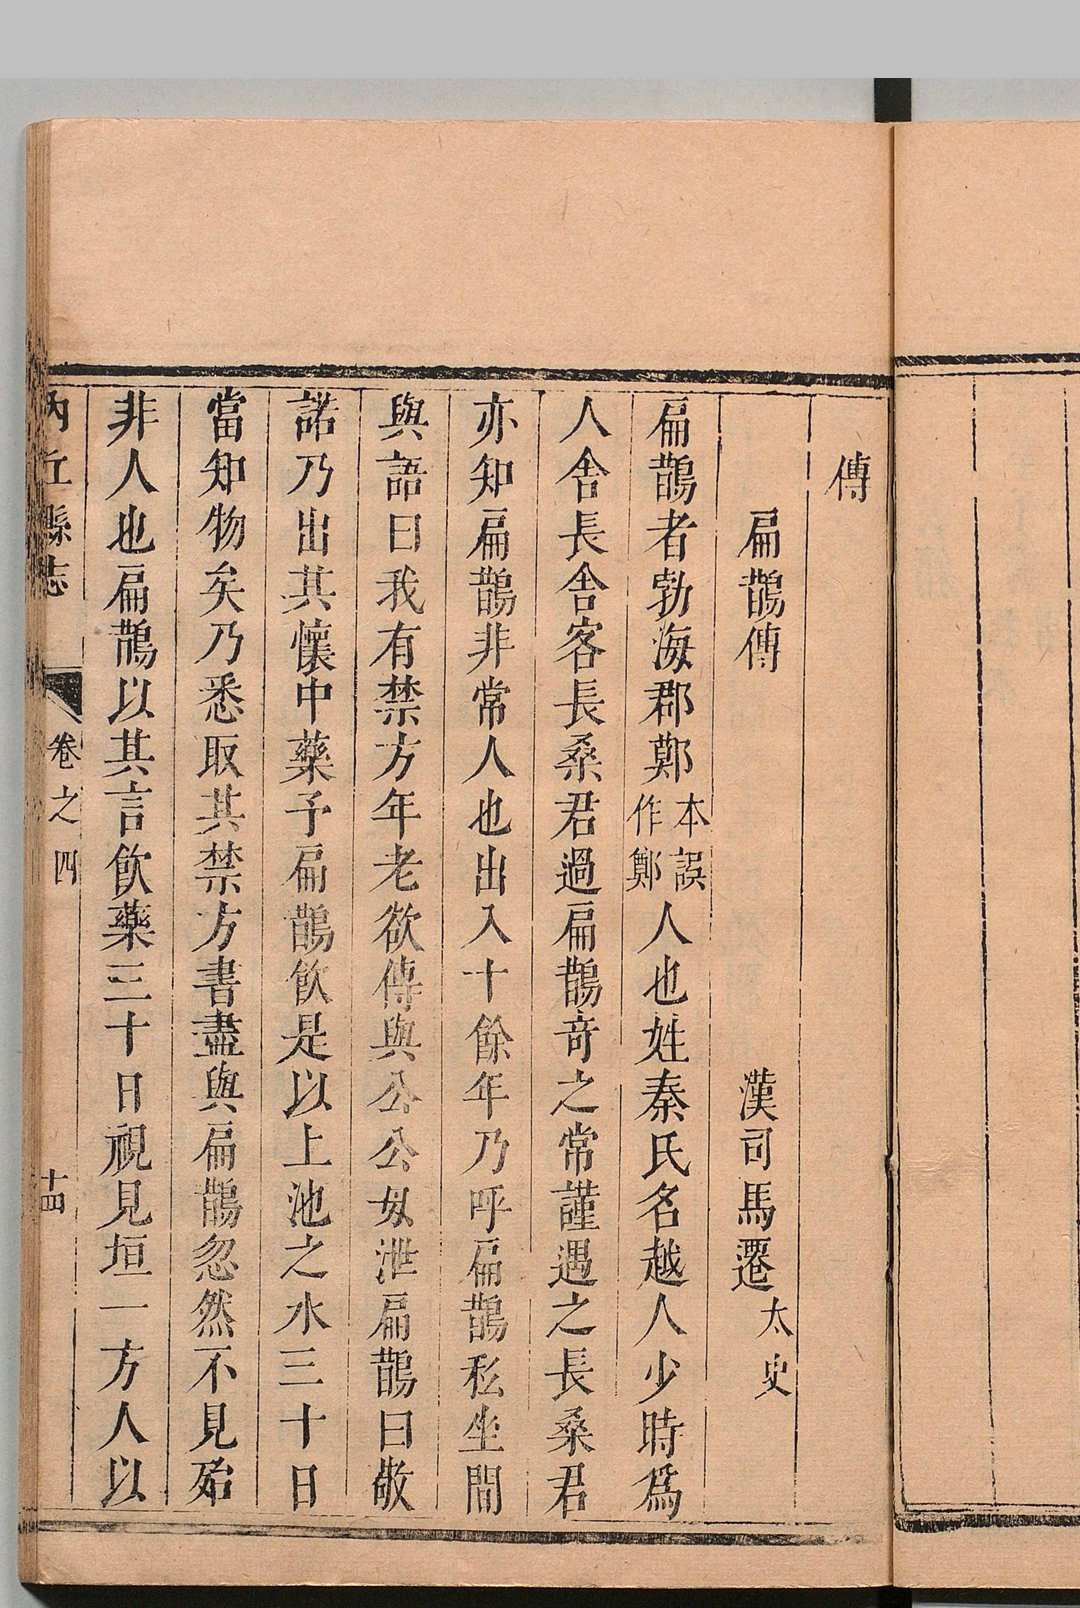 傳
扁鵲傳 漢司馬遷太史
扁鵲者勃海郡鄭本誤作鄭人也姓秦氏名越人少時爲
人舍長舍客長桑君過扁鵲奇之常謹遇之長桑君
亦知扁鵲非常人也出入十餘年乃呼扁鵲私坐間
與語曰我有禁方年老欲傳與公公毋泄扁鵲曰敬
諾乃出其懷中藥予扁鵲飲是以上池之水三十日
當知物矣乃悉取其禁方書盡與扁鵲忽然不見殆
非人也扁鵲以其言飲藥三十日視見垣一方人以
內丘縣志 卷之四 十四